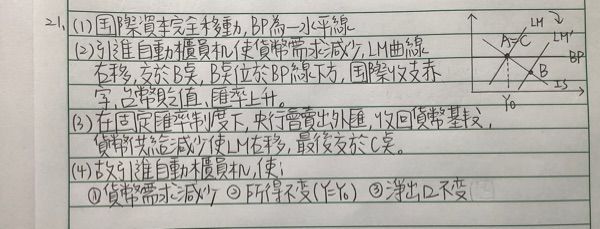 21、(1) 國際資本完全移動,BP為一水平線
(2) 引進自動櫃員機,使貨幣需求減少,LM曲線
右移,交於B點,B點位於BP線下方,國際收支赤
字,台幣貶值、匯率上升。
(3) 在固定匯率制度下,央行會賣出外匯,收回貨幣基數,
貨幣供給減少使LM右移,最後交於C點。
(4) 故引進自動櫃員機,使i
①貨幣需求減少 ②所得不變(Y=Y₀) ③淨出口不变
LM
LM'
A=C
BP
B
IS
Y₀